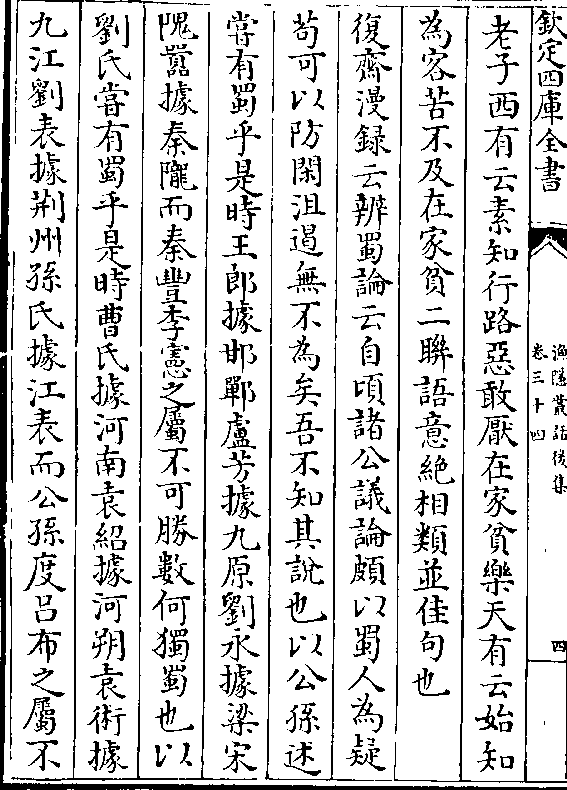 欽定四庫全書
漁隱叢話後集
卷三十四
四
老子西有云素知行路惡敢厭在家貧樂天有云始知
為客苦不及在家貧二聯語意絶相類並佳句也
復齋漫録云辨蜀論云自頃諸公議論頗以蜀人為疑
茍可以防閑沮遏無不為矣吾不知其說也以公孫述
嘗有蜀乎是時王郎據邯鄲盧芳據九原劉永據梁宋
隗囂據秦隴而秦豐李憲之屬不可勝數何獨蜀也以
劉氏嘗有蜀乎是時曹氏據河南袁紹據河朔袁術據
九江劉表據荆州孫氏據江表而公孫度吕布之屬不